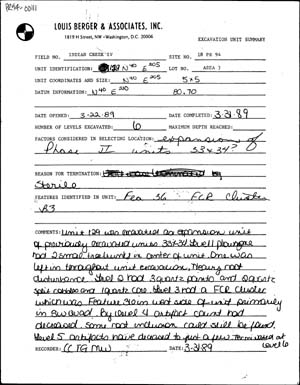 LOUIS BERGER & ASSOCIATES, INC.
1819 H Street, NW · Washington, D.C. 20006
EXCAVATION UNIT SUMMARY
FIELD NO. INDIAN CREEK V SITE NO. 18 PR 94
UNIT IDENTIFICATION: N40 E305 LOT NO. AREA 3
UNIT COORDINATES AND SIZE: N40 E305 5x5
DATUM INFORMATION: N40 E310 80.70
DATE OPENED: 3-22-89 DATE COMPLETED: 3-31-89
NUMBER OF LEVELS EXCAVATED: 6 MAXIMUM DEPTH REACHED:
FACTORS CONSIDERED IN SELECTING LOCATION: expansion of
Phase II units 33+34?
REASON FOR TERMINATION:
Sterile
FEATURES IDENTIFIED IN UNIT: Fea 36 FCR Cluster
COMMENTS: Unit 129 was excavated as expansion unit
of previously excavated units 33+34. Level 1
had 2 small tree in center of unit. One was
left in throughout unit excavation. Heavy root
disturbance. Level 2 had 3 quartz points and 2 quartz
split and 1 quartz core. Level 3 had a FCR Cluster
which was Feature 36 in west side of unit primarily
in SW quad. By level 4 artifact count had
decreased. Some root inclusion could still be found.
Level 5 artifacts have decreased to just a few. Terminated at
level 6
RECORDER: DATE: 3-31-89